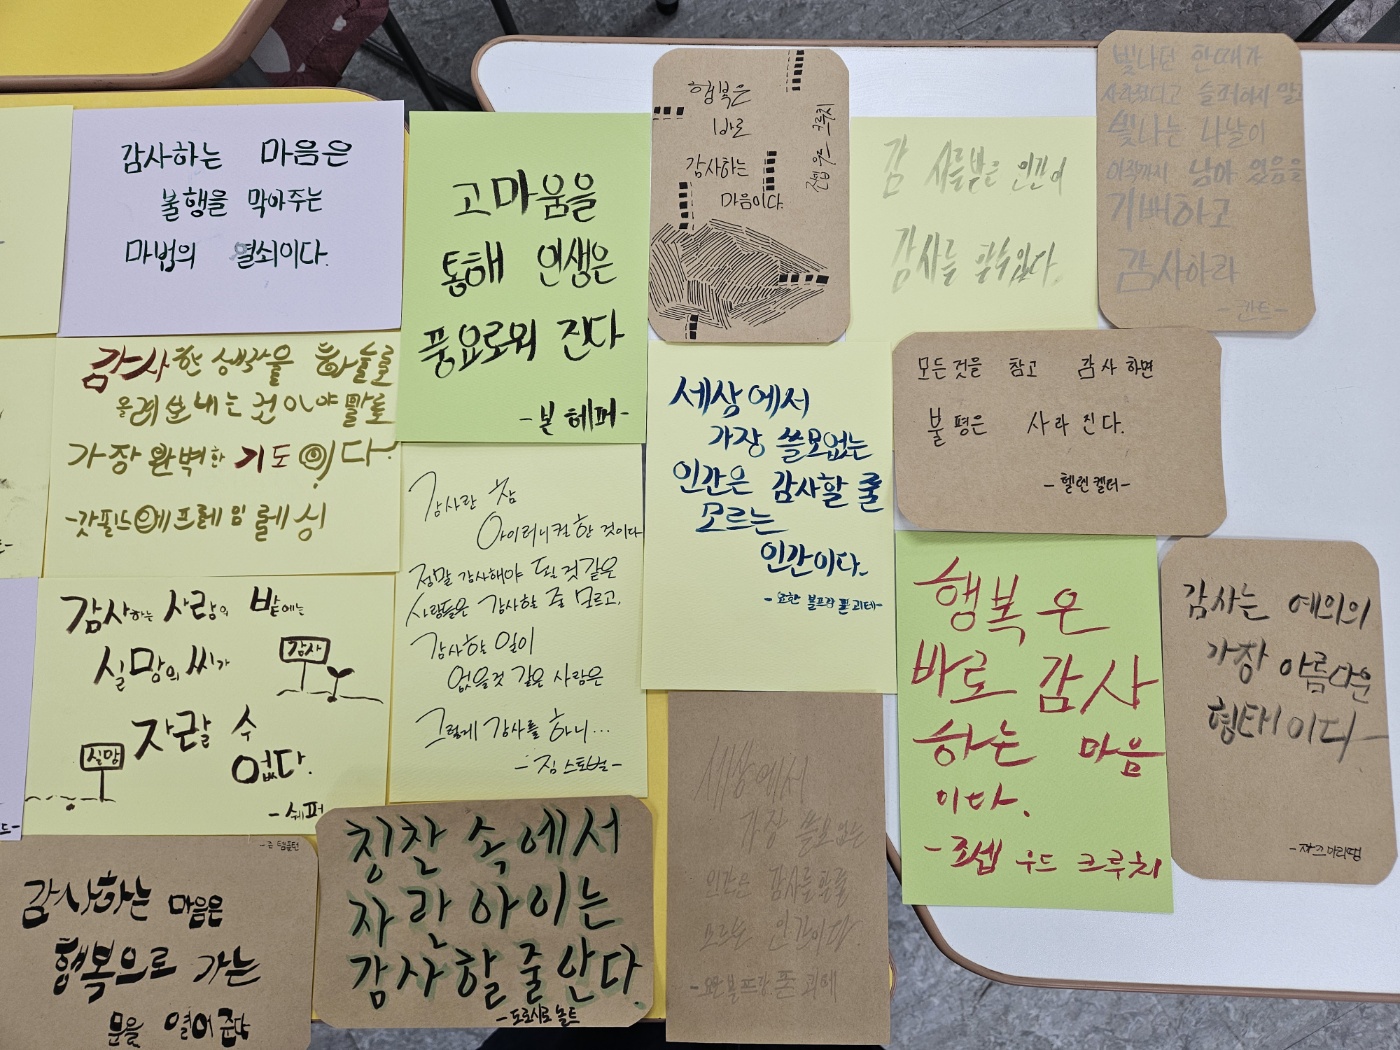 감사하는 마음은
불행을 막아주는
마법의 열쇠이다.
고마움을
통해 인생은
풍요로워 진다
-본 헤퍼-
행복은
바로
감사하는
마음이다.
조셉 우드 크루치
감 사를 받은 인간이
감사를 알수있다.
빛나던 한때가
사라졌다고 슬퍼하지 말고
빛나는 나날이
아직까지 남아 있음을
기뻐하고
감사하라
-칸트-
감사한 생각을 하늘로
올려 보내는 것이야 말로
가장 완벽한 기도이다.
-갓필드에프레임 레싱
감사란 참
아이러니컬 한 것이다
정말 감사해야 될 것 같은
사람들은 감사할 줄 모르고,
감사할 일이
없을것 같은 사람은
그렇게 감사를 하니...
-짐 스토벌-
세상에서
가장 쓸모없는
인간은 감사할 줄
모르는
인간이다.
-요한 볼프강 폰 괴테-
모든것을 참고 감사하면
불평은 사라진다.
-헬렌켈러-
감사하는 사람의 밭에는
실망의 씨가
감사
자랄 수
실망
없다.
-쉐퍼
행복은
바로 감사
하는 마음
이다.
-조셉 우드 크루치
감사는 예의의
가장 아름다운
형태이다
-쟈크마리땡
세상에서
가장 쓸모없는
인간은 감사를할줄
모르는 인간이다
-요한볼프강 폰 괴테
-존 템플턴
감사하는 마음은
행복으로 가는
문을 열어 준다
칭찬 속에서
자란 아이는
감사할 줄 안다.
-도로시로 놀트